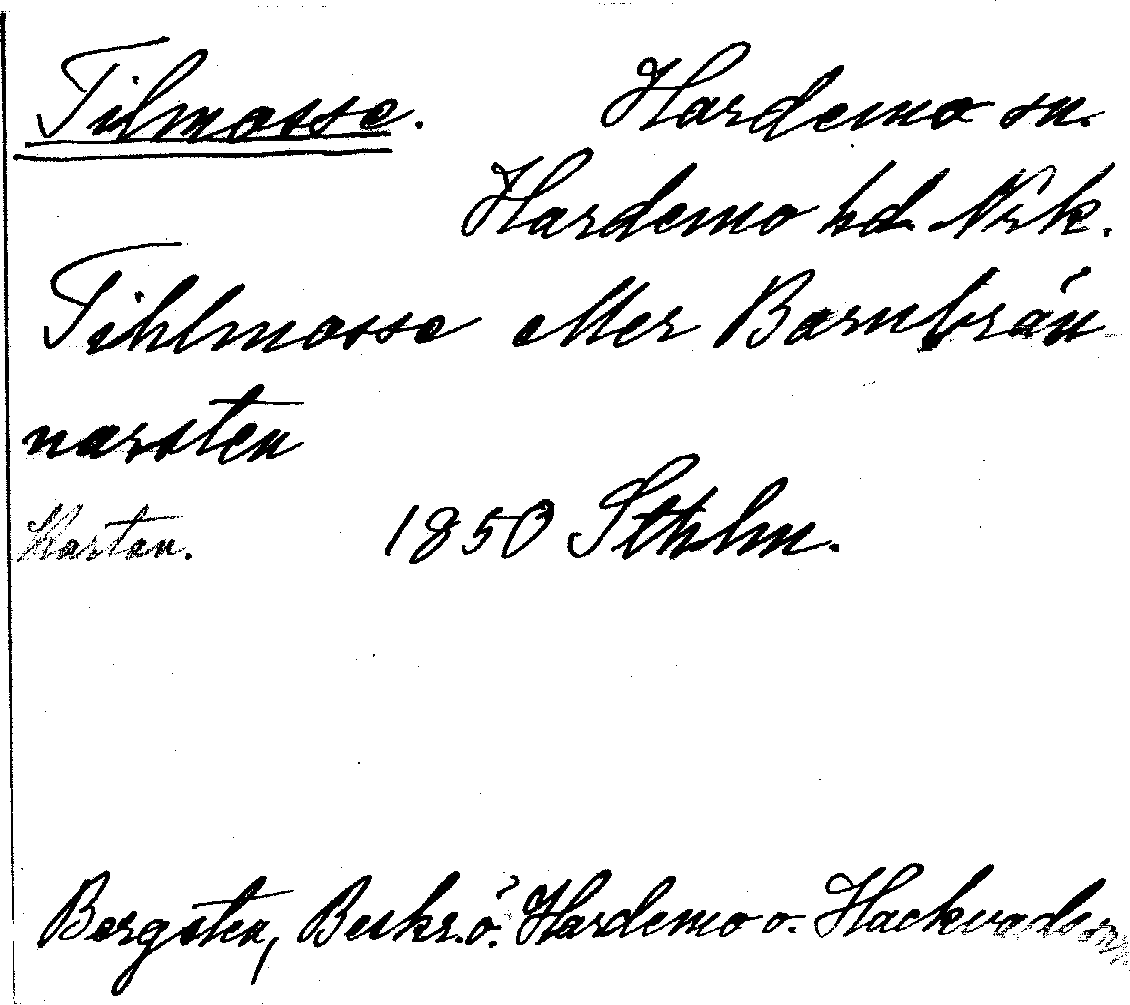 Tilmosse. Hardemo sn.
Hardemo hd. Nrk.
Tihlmosse eller Barnbrän
narsten
Kartan. 1850 Sthlm.
Bergsten, Beskr. ö. Hardemo o. Hackvads snr